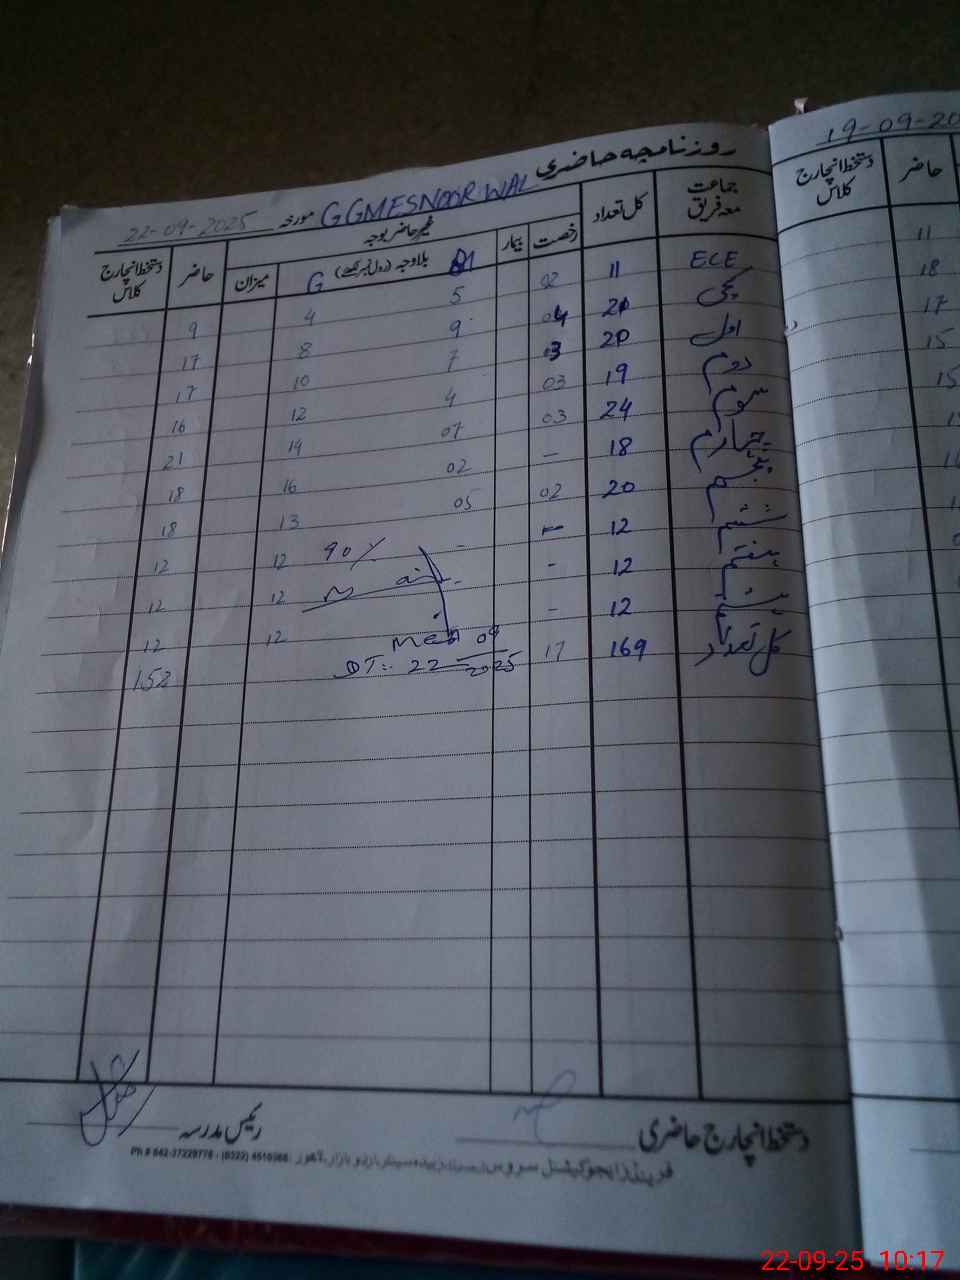 روزنامچہ حاضری
GGMES NOOR WAL مورخہ 22-09-2025
جماعت معہ فریق کل تعداد رخصت بیمار غیر حاضر بوجہ حاضر دستخط انچارج کلاس
بلاوجہ (رول نمبر لکھیے) G میزان
ECE 11 02 5 4 9
پکی 21 04 9 8 17
اول 20 03 7 10 17
دوم 19 03 4 12 16
سوم 24 03 07 14 21
چہارم 18 - 02 16 18
پنجم 20 02 05 13 18
ششم 12 - - 12 12
ہفتم 12 - - 12 12
ہشتم 12 - 12 12
کل تعداد 169 17 152
90%
Mea 09
DT:- 22 2025
دستخط انچارج حاضری
رئیس مدرسہ
فرینڈز ایجوکیشنل سروس
اردو بازار، لاہور
19-09-20
حاضر دستخط انچارج کلاس
11
18
17
15
15
22-09-25 10:17